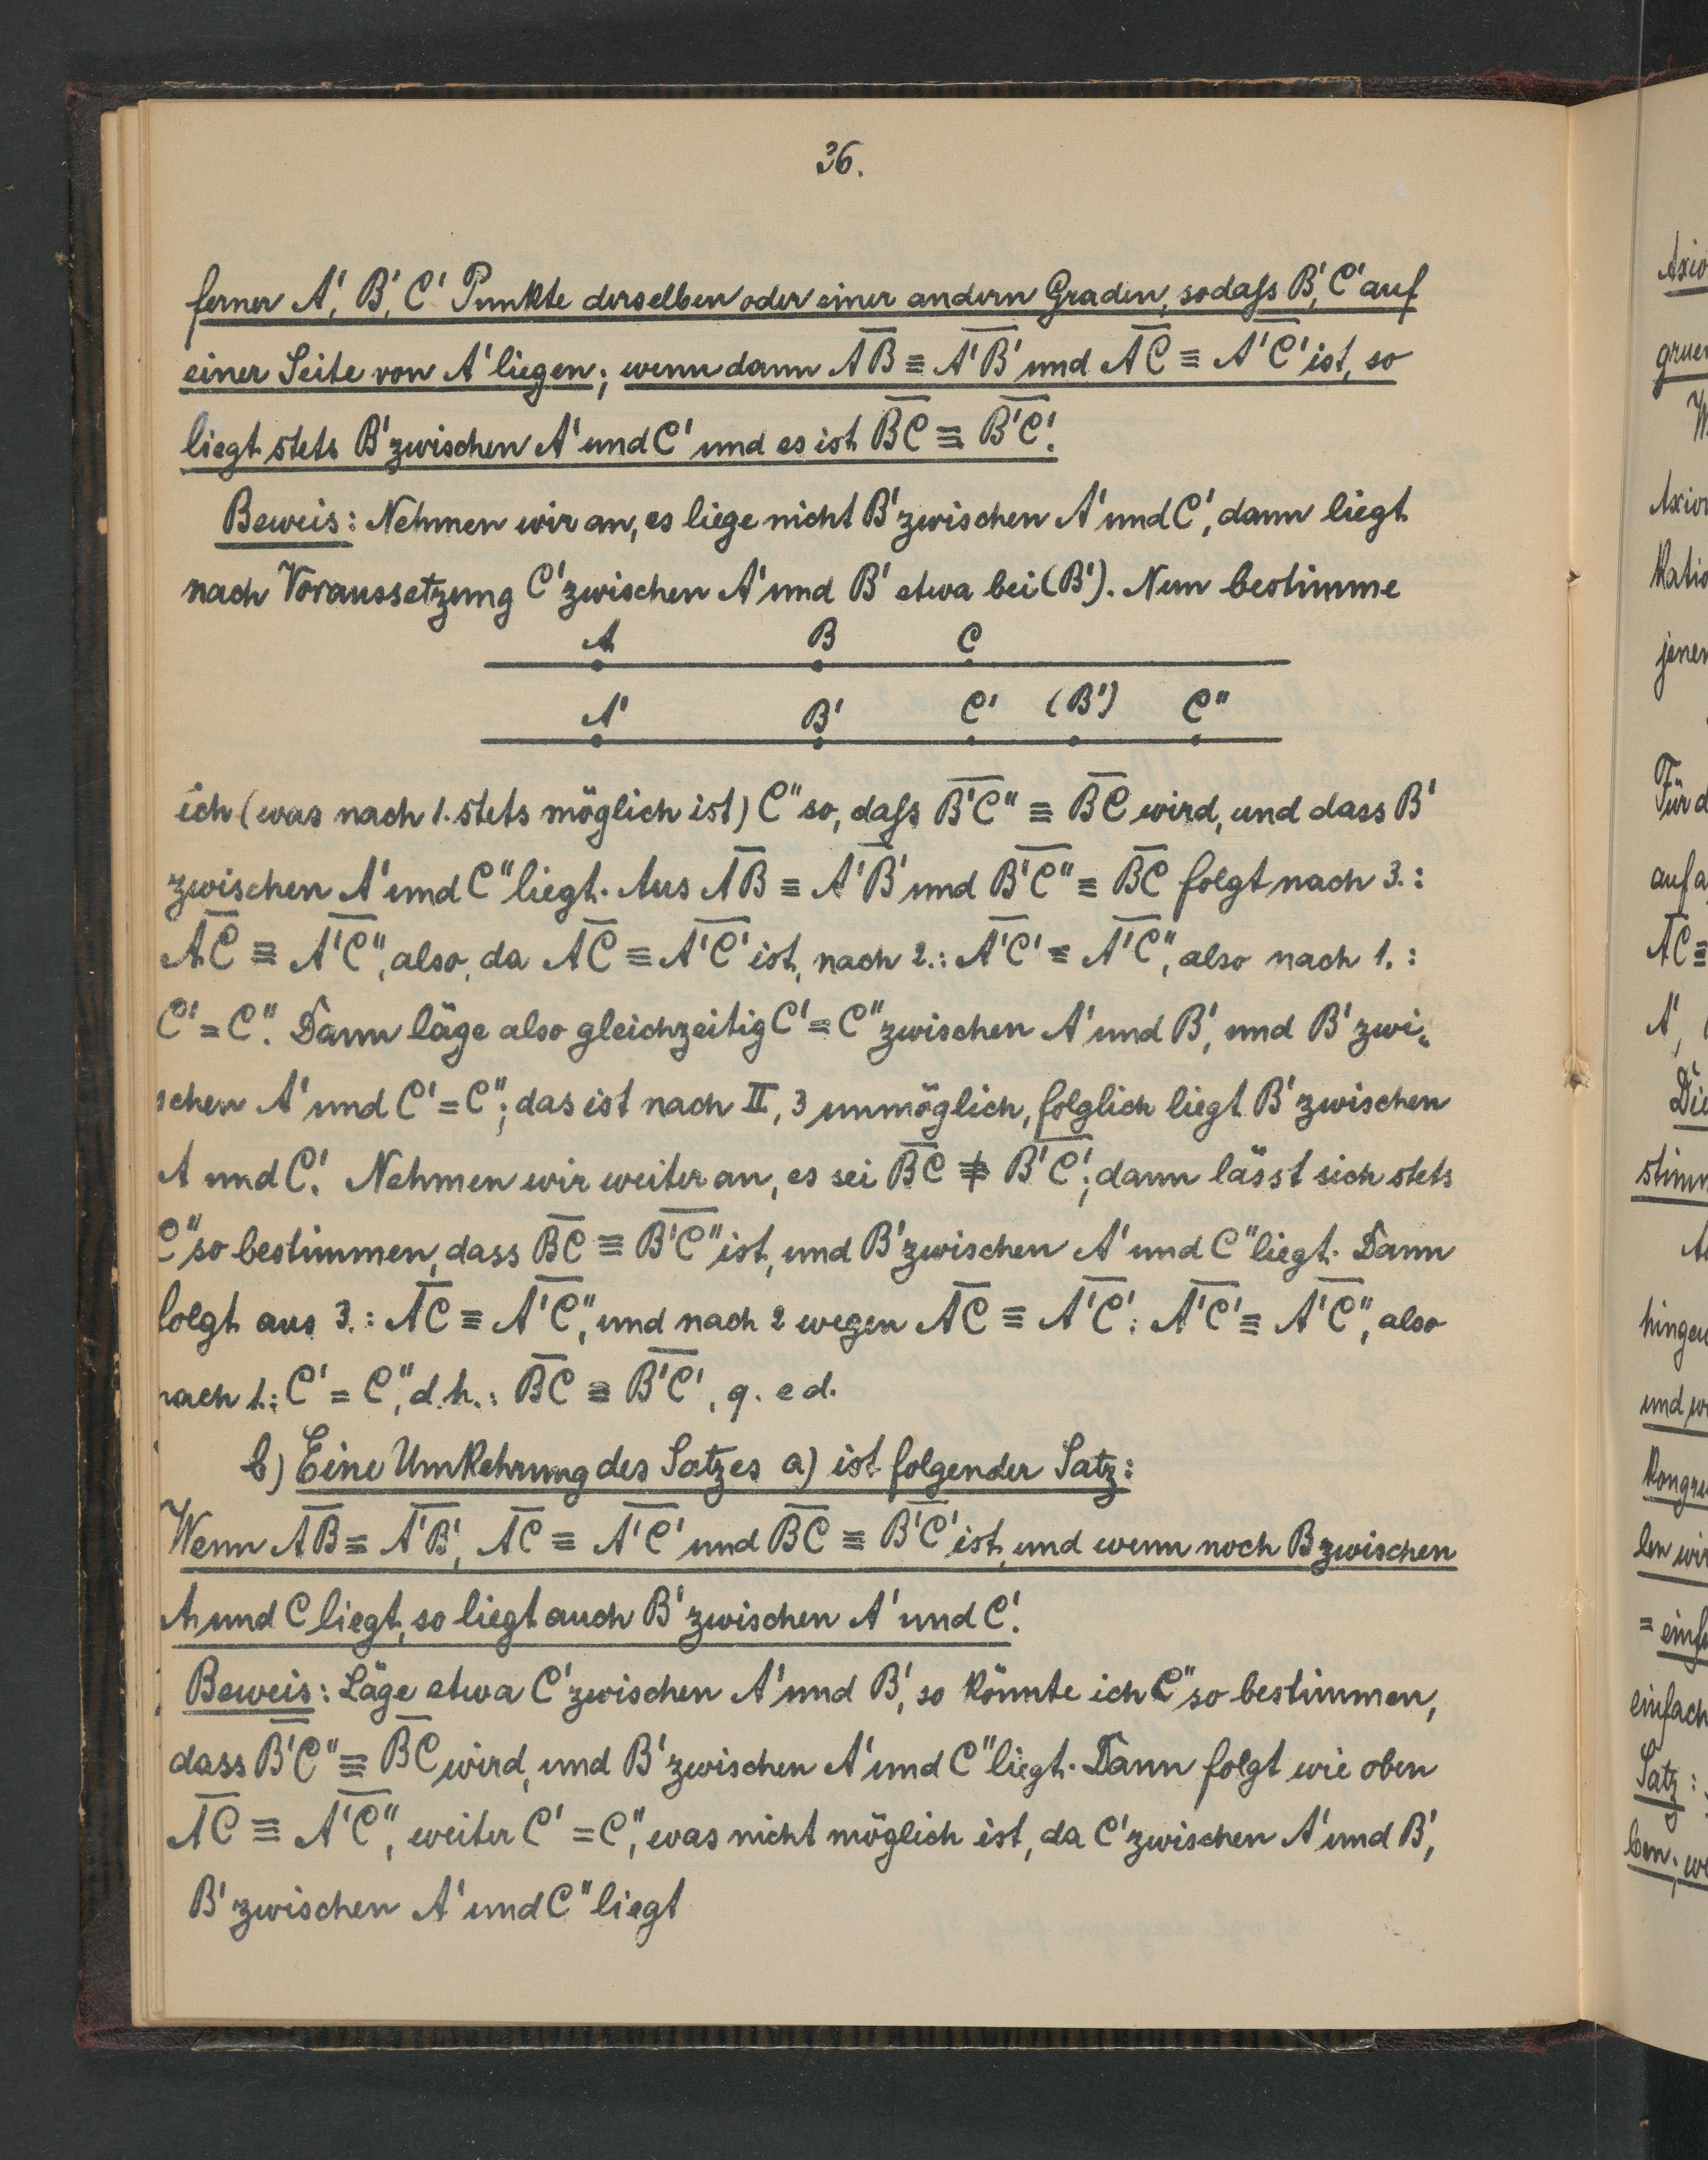 36.
ferner A', B', C' Punkte derselben oder einer andern Graden, sodaſs B', C' auf
einer Seite von A' liegen; wenn dann A̅B̅ ≡ A̅'B̅' und A̅C̅ ≡ A̅'C̅' ist, so
liegt stets B' zwischen A' und C' und es ist B̅C̅ ≡ B̅'C̅'.
Beweis: Nehmen wir an, es liege nicht B' zwischen A' und C', dann liegt
nach Voraussetzung C' zwischen A' und B' etwa bei (B'). Nun bestimme
A B C
A' B' C' (B') C"
ich (was nach 1. stets möglich ist) C" so, daſs B̅'C̅" ≡ B̅C̅ wird, und dass B'
zwischen A' und C" liegt. Aus A̅B̅ ≡ A̅'B̅' und B̅'C̅" ≡ B̅C̅ folgt nach 3.:
A̅C̅ ≡ A̅'C̅", also, da A̅C̅ ≡ A̅'C̅' ist, nach 2.: A̅'C̅' ≡ A̅'C̅", also nach 1.:
C' = C". Dann läge also gleichzeitig C' = C" zwischen A' und B', und B' zwi-
schen A' und C' = C"; das ist nach II, 3 unmöglich, folglich liegt B' zwischen
A und C'. Nehmen wir weiter an, es sei B̅C̅ ≢ B̅'C̅'; dann lässt sich stets
C" so bestimmen, dass B̅C̅ ≡ B̅'C̅" ist, und B' zwischen A' und C" liegt. Dann
folgt aus 3.: A̅C̅ ≡ A̅'C̅", und nach 2 wegen A̅C̅ ≡ A̅'C̅': A̅'C̅' ≡ A̅'C̅", also
nach 1.: C' = C", d.h.: B̅C̅ ≡ B̅'C̅', q. e d.
b) Eine Umkehrung des Satzes a) ist folgender Satz:
Wenn A̅B̅ ≡ A̅'B̅', A̅C̅ ≡ A̅'C̅' und B̅C̅ ≡ B̅'C̅' ist, und wenn noch B zwischen
A und C liegt, so liegt auch B' zwischen A' und C'.
Beweis: Läge etwa C' zwischen A' und B', so könnte ich C" so bestimmen,
dass B̅'C̅" ≡ B̅C̅ wird, und B' zwischen A' und C" liegt. Dann folgt wie oben
A̅C̅ ≡ A̅'C̅", weiter C' = C", was nicht möglich ist, da C' zwischen A' und B',
B' zwischen A' und C" liegt